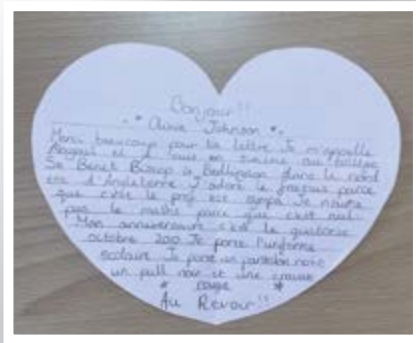 Bonjour!!
Johnson
Merci beaucoup pour ta lettre Je m'appelle
et je suis en au collège
St Benet Biscop à Bedlington dans le nord
est d'Angleterre J'adore le français parce
que c'est le prof est sympa Je n'aime
pas le maths parce que c'est nul
Mon anniversaire c'est le quatorze
octobre 200 Je porte l'uniforme
scolaire Je porte un pantalon noir
un pull noir et une cravate
rouge
Au Revoir!!